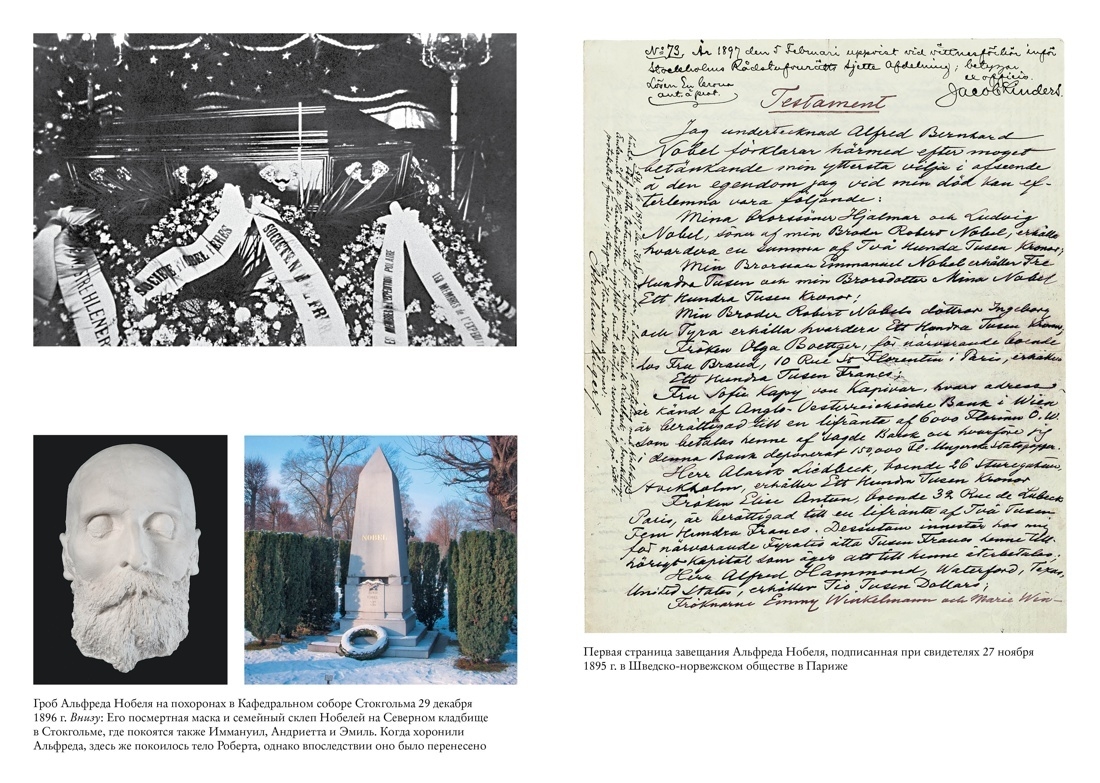 TREHLENER
SOCIETE N
NOBEL
Гроб Альфреда Нобеля на похоронах в Кафедральном соборе Стокгольма 29 декабря
1896 г. Внизу: Его посмертная маска и семейный склеп Нобелей на Северном кладбище
в Стокгольме, где покоятся также Иммануил, Андриетта и Эмиль. Когда хоронили
Альфреда, здесь же покоилось тело Роберта, однако впоследствии оно было перенесено
No 73. År 1897 den 5 Februari uppvist vid vittnesförhör inför
Stockholms Rådstufvurätts sjette Afdelning; betygar
ex officio.
Testament
Jag undertecknad Alfred Bernhard
Nobel förklarar härmed efter moget
betänkande min yttersta vilja i afseende
å den egendom jag vid min död kan ef-
terlemna vara följande:
Mina Brorsöner Hjalmar och Ludvig
Nobel, söner af min Broder Robert Nobel, erhålla
hvardera en summa af Två Hundra Tusen Kronor;
Min Brorson Emmanuel Nobel erhåller Tre
Hundra Tusen och min Brorsdotter Mina Nobel
Ett Hundra Tusen Kronor;
Min Broder Robert Nobels döttrar Ingeborg
och Tyra erhålla hvardera Ett Hundra Tusen Kronor;
Fröken Olga Boettger, för närvarande boende
hos Fru Brand, 10 Rue St Florentin i Paris, erhåller
Ett Hundra Tusen Francs;
Fru Sofie Kapy von Kapivar, hvars adress
är känd af Anglo-Oesterreichische Bank i Wien
är berättigad till en lifränta af 6000 Florins Ö.W.
som betalas henne af sagde Bank och hvarför jag
i denna Bank deponerat 150,000 Fl. i Ungerska Statspapper.
Herr Alarik Liedbeck, boende 26 Sturegatan,
Stockholm, erhåller Ett Hundra Tusen Kronor
Fröken Elise Antun, boende 32 Rue de Lubeck
Paris, är berättigad till en lifränta af Två Tusen
Fem Hundra Francs. Dessutom innestår hos mig
för närvarande Fyratio åtta Tusen Francs henne till-
hörigt Kapital som äger att till henne återbetalas;
Herr Alfred Hammond, Waterford, Texas,
United States, erhåller Tio Tusen Dollars;
Fröknarne Emmy Winkelmann och Marie Win-
Первая страница завещания Альфреда Нобеля, подписанная при свидетелях 27 ноября
1895 г. в Шведско-норвежском обществе в Париже